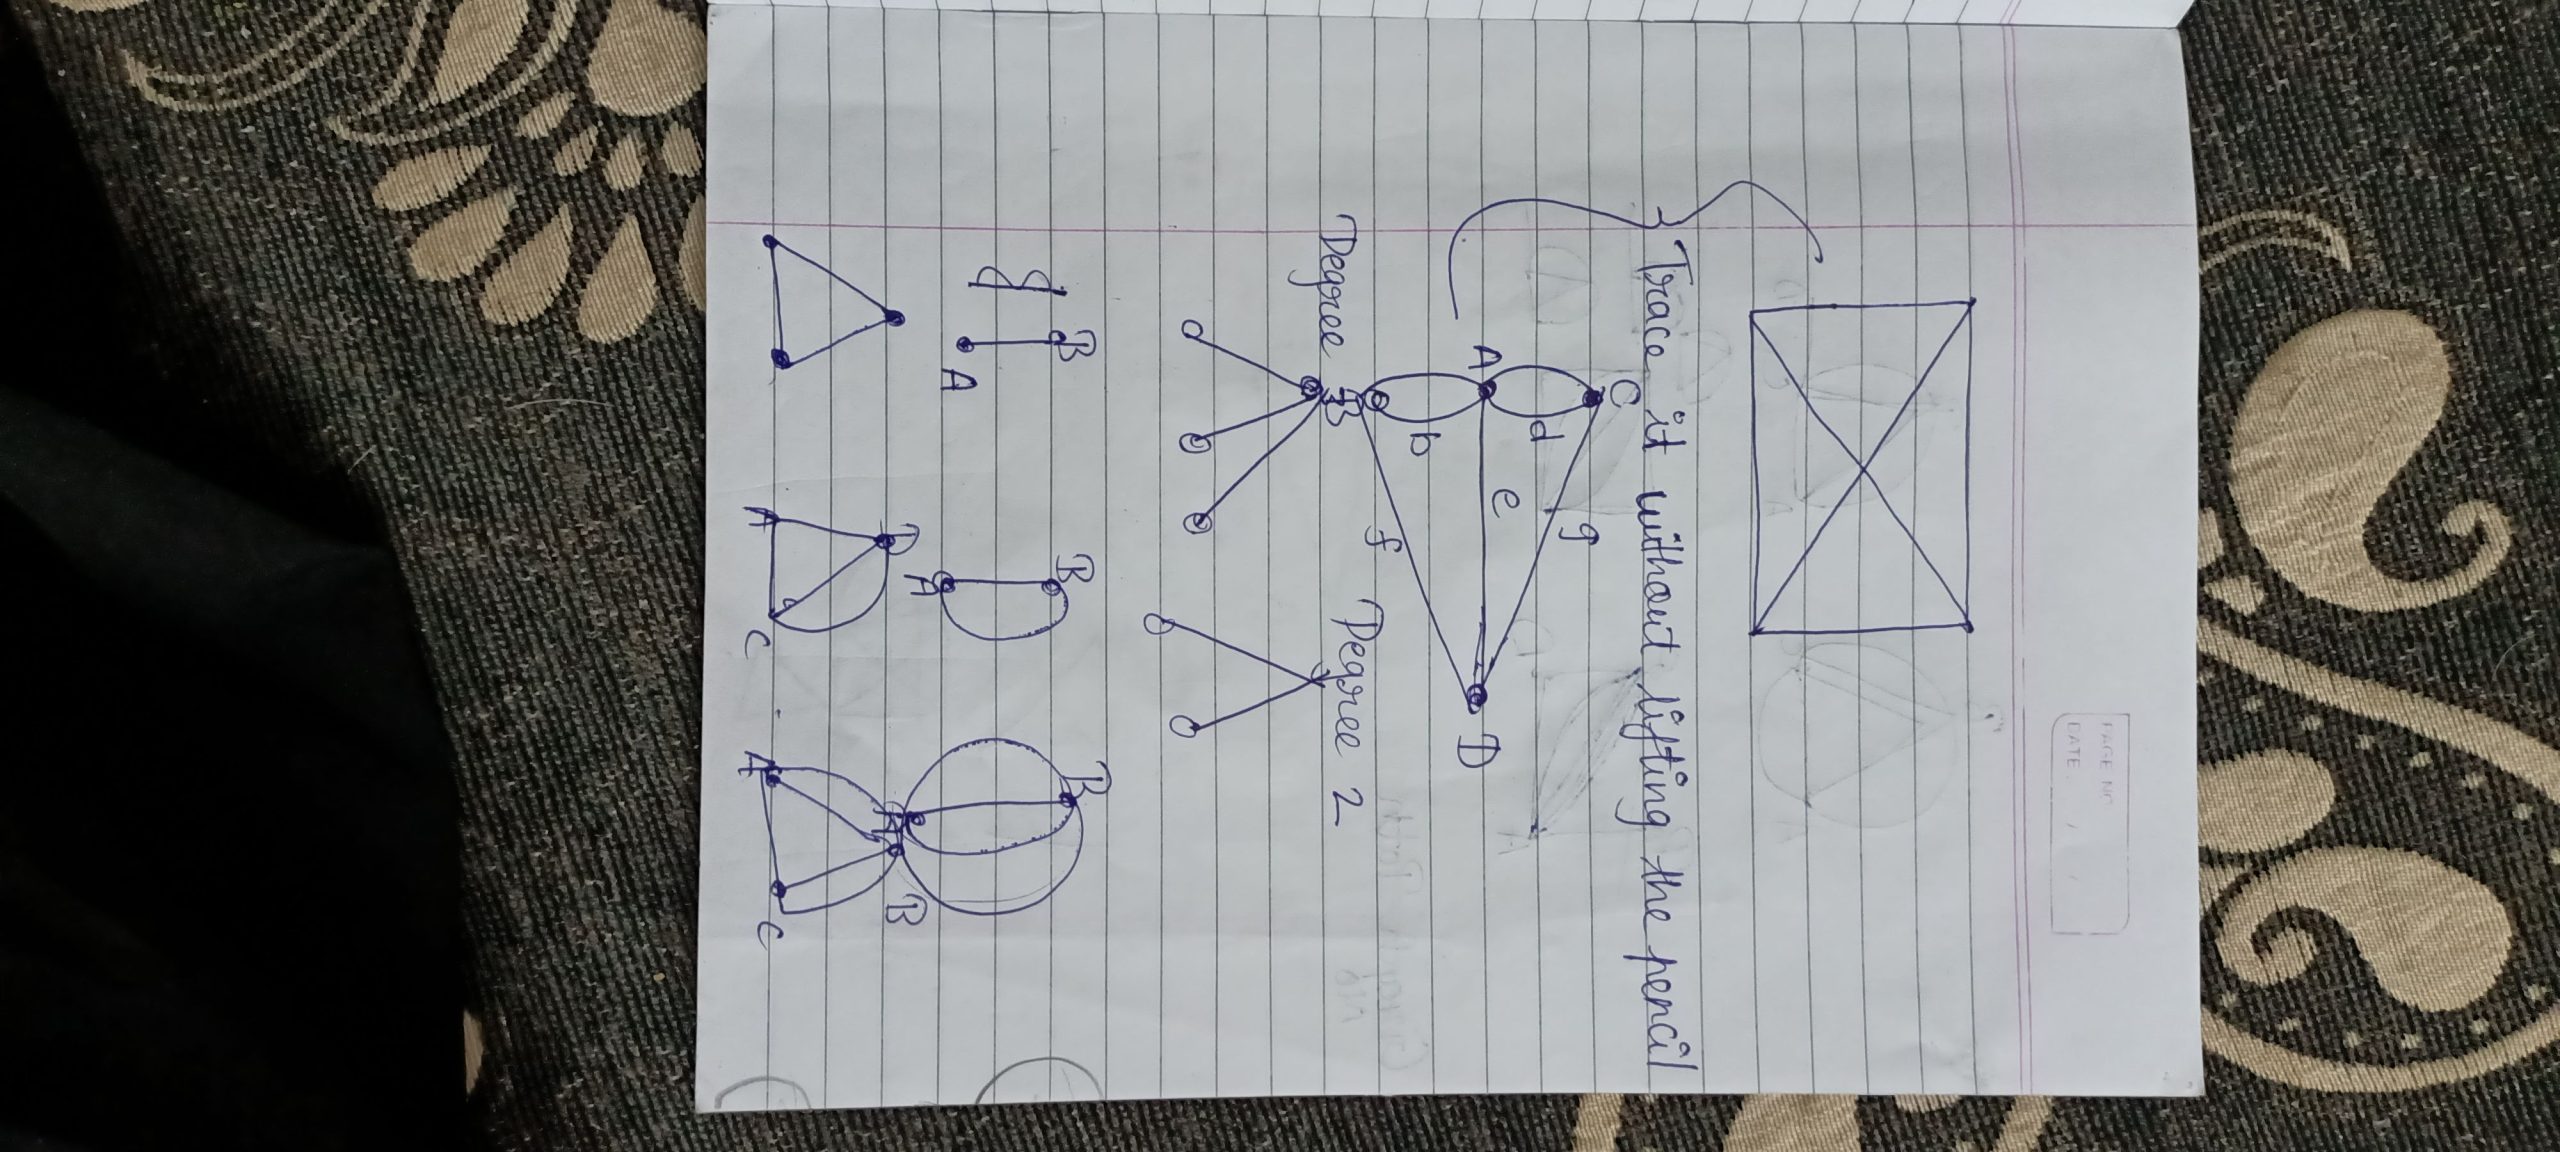 PAGE NO.
DATE / /
Trace it without lifting the pencil
C
g
d
A e D
b
f
B
Degree Degree 2
B B B
A A A
B B
A C A C